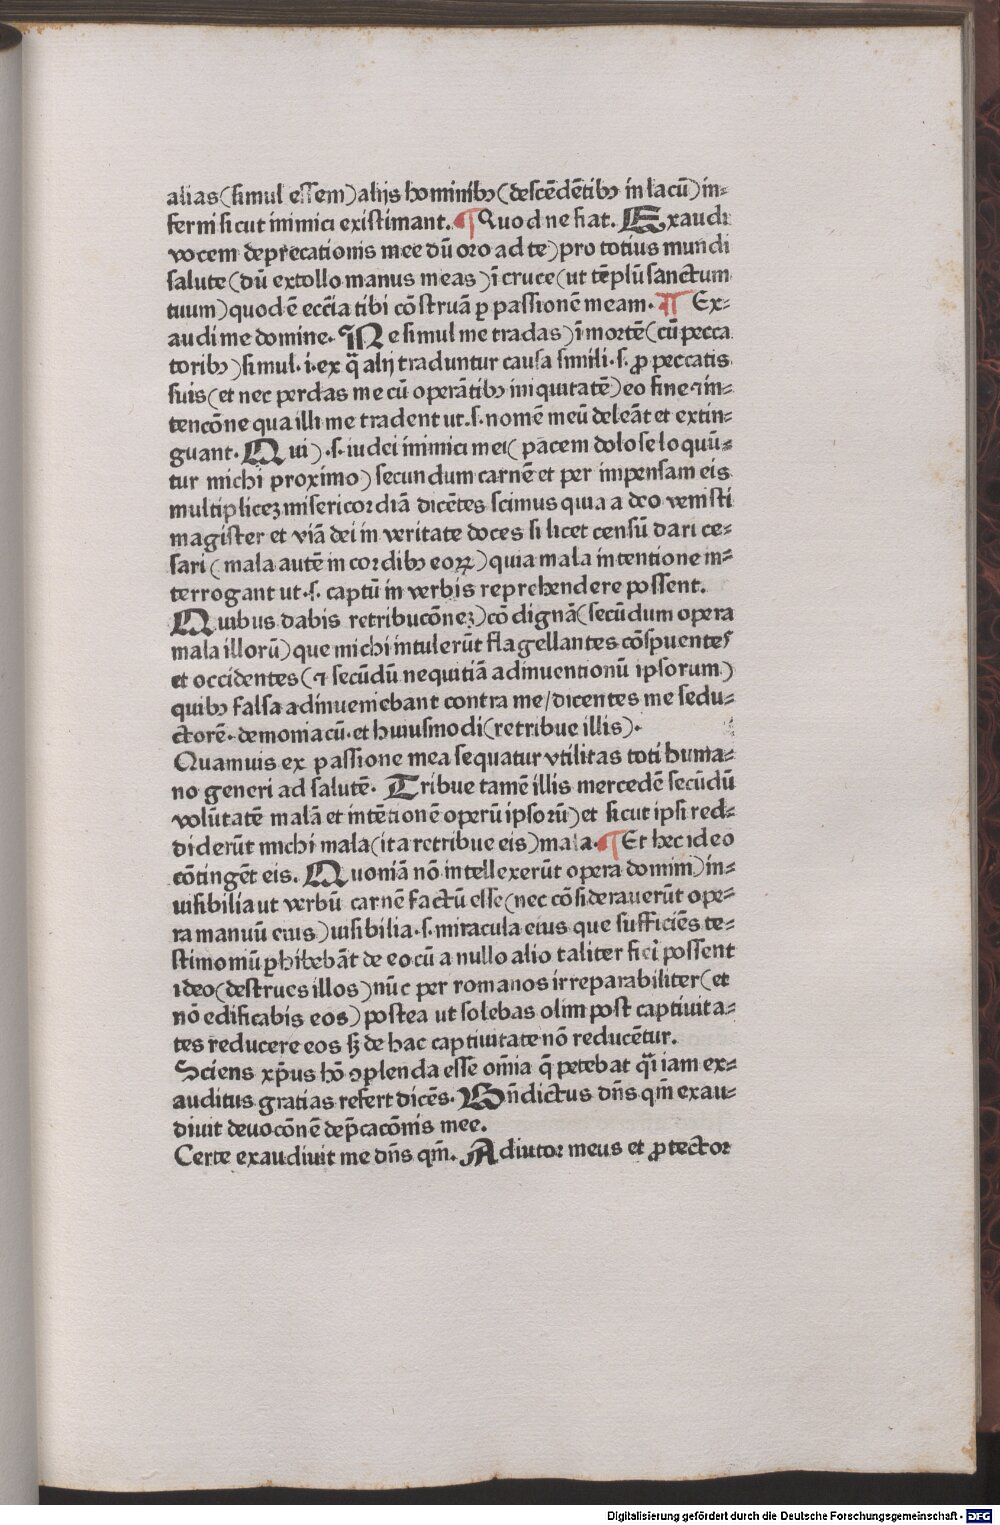 alias(simul essem)alijs hominibꝯ(descēdētibꝯ in lacū)in⸗
ferni sicut inimici existimant. ¶ Quod ne fiat. Exaudi
vocem deprecationis mee dū oro ad te)pro totius mundi
salute(dū extollo manus meas)ī cruce(ut tēplū sanctum
tuum)quod ē eccīa tibi cōstruā ꝑ passionē meam. ¶ Ex⸗
audi me domine. Ne simul me tradas)ī mortē(cū pecca
toribꝯ)simul.i.ex q̄ alij traduntur causa simili.s. ꝓ peccatis
suis(et nec perdas me cū operātibꝯ iniquitatē)eo fine ⁊ in⸗
tencōne qua illi me tradent ut.s.nomē meū deleāt et extin⸗
guant. Qui).s.iudei inimici mei(pacem dolose loquū⸗
tur michi proximo)secundum carnē et per impensam eis
multipliceꝫ misericordiā dicētes scimus quia a deo venisti
magister et viā dei in veritate doces si licet censū dari ce⸗
sari(mala autē in cordibꝯ eoꝝ)quia mala intentione in⸗
terrogant ut.s. captū in verbis reprehendere possent.
Quibus dabis retribucōneꝫ)cōdignā(secūdum opera
mala illorū)que michi intulerūt flagellantes cōspuentes
et occidentes(⁊ secūdū nequitiā adinuentionū ipsorum)
quibꝯ falsa adinueniebant contra me/dicentes me sedu⸗
ctorē.demoniacū.et huiusmodi(retribue illis).
Quamuis ex passione mea sequatur vtilitas toti huma⸗
no generi ad salutē. Tribue tamē illis mercedē secūdū
volūtatē malā et intētionē operū ipsorū)et sicut ipsi red⸗
diderūt michi mala(ita retribue eis)mala. ¶ Et hec ideo
cōtingēt eis. Quoniā nō intellexerūt opera domini)in⸗
uisibilia ut verbū carnē factū esse(nec cōsiderauerūt ope⸗
ra manuū eius)uisibilia.s.miracula eius que sufficiēs te⸗
stimoniū ꝑhibebāt de eo cū a nullo alio taliter fieri possent
ideo(destrues illos)nūc per romanos irreparabiliter(et
nō edificabis eos)postea ut solebas olim post captiuita⸗
tes reducere eos sꝫ de hac captiuitate nō reducētur.
Sciens xp̄us hō ↄplenda esse om̄ia q̄ petebat q̄i iam ex⸗
auditus gratias refert dicēs. Bn̄dictus dn̄s qm̄ exau⸗
diuit deuocōnē dep̄cacōnis mee.
Certe exaudiuit me dn̄s qm̄. Adiutor meus et ꝓtector
Digitalisierung gefördert durch die Deutsche Forschungsgemeinschaft - DFG